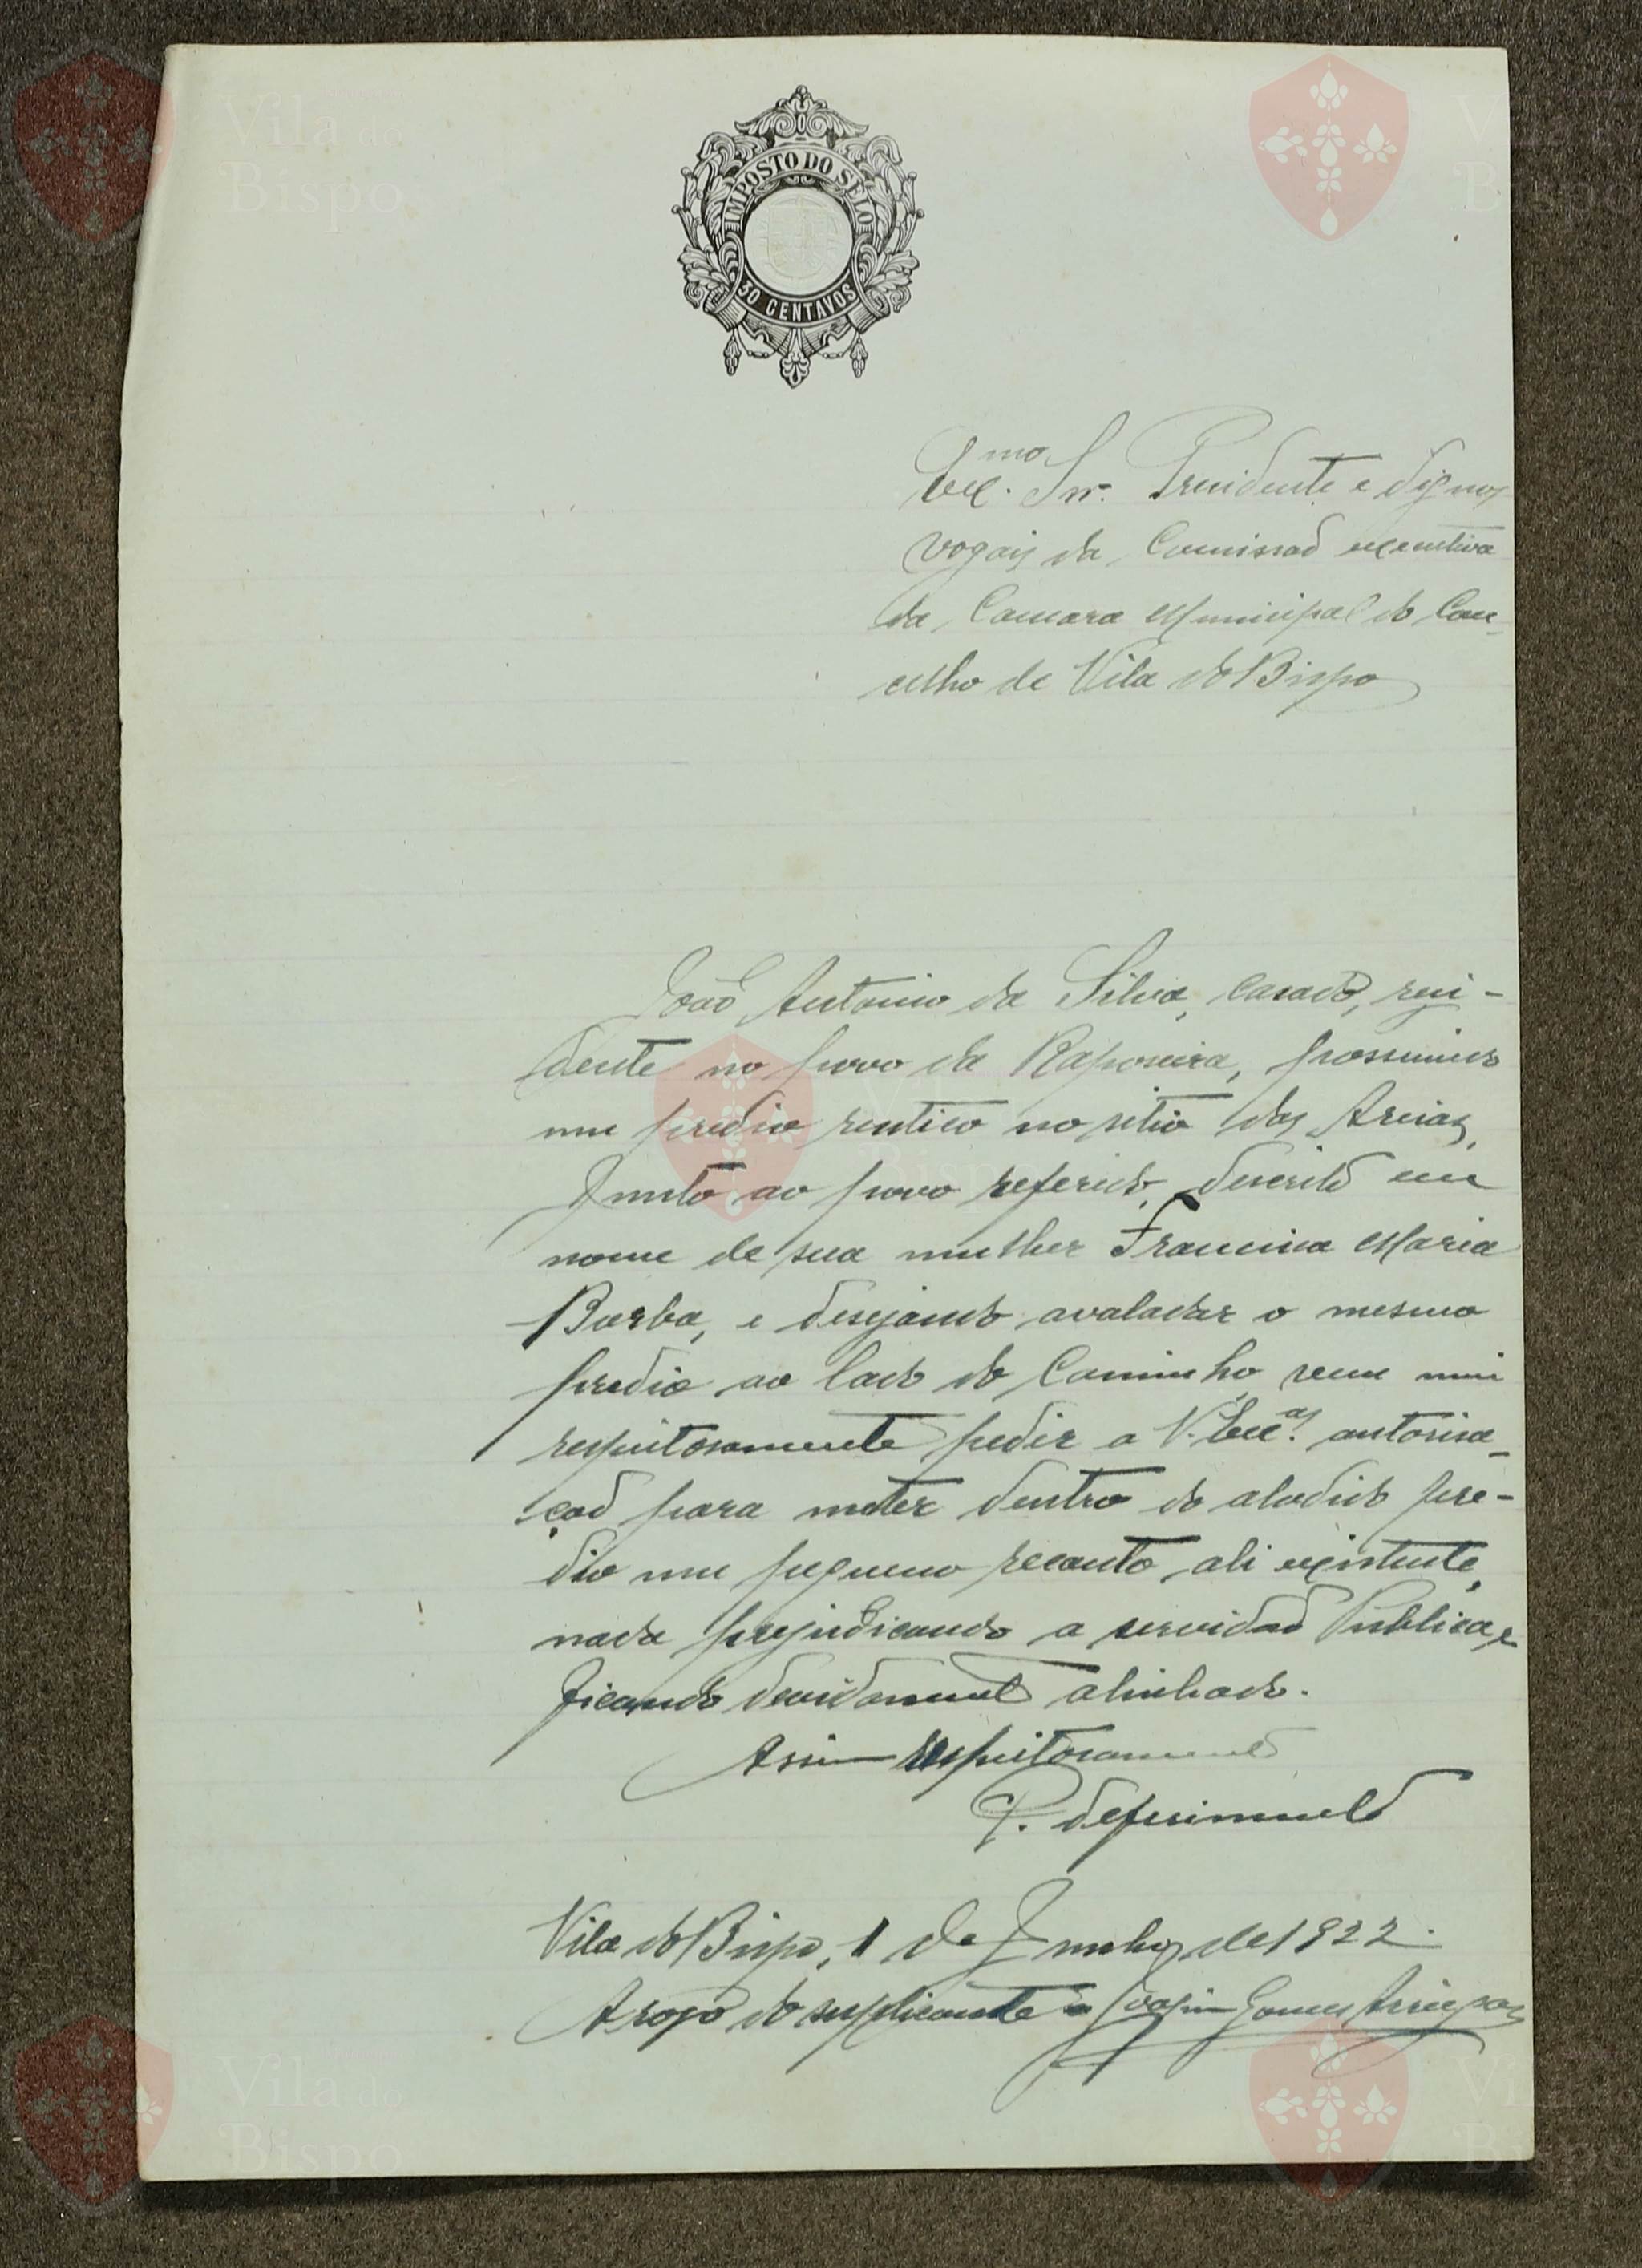 IMPOSTO DO SELO
30 CENTAVOS
Exc.mo Snr. Presidente e dignos
vogais da Comissão executiva
da Camara Municipal do Con-
celho de Vila do Bispo
João Antonio da Silva, casado, resi-
dente no povo da Raposeira, possuindo
um predio rustico no sitio das Areias,
Junto ao povo referido, descrito em
nome de sua mulher Francisca Maria
Borba, e desejando avaladar o mesmo
predio ao lado do Caminho, vem mui
respeitosamente pedir a V. Exc.as autorisa-
ção para meter dentro do aludido pre-
dio um pequeno recanto, ali existente,
nada prejudicando a servidão Publica, e
ficando devidamente alinhado.
Assim respeitosamente
P. deferimento
Vila do Bispo, 1 de Junho de 1922.
A rogo do suplicante Joaquim Gomes
Vila do
Bispo
Vila do
Bispo